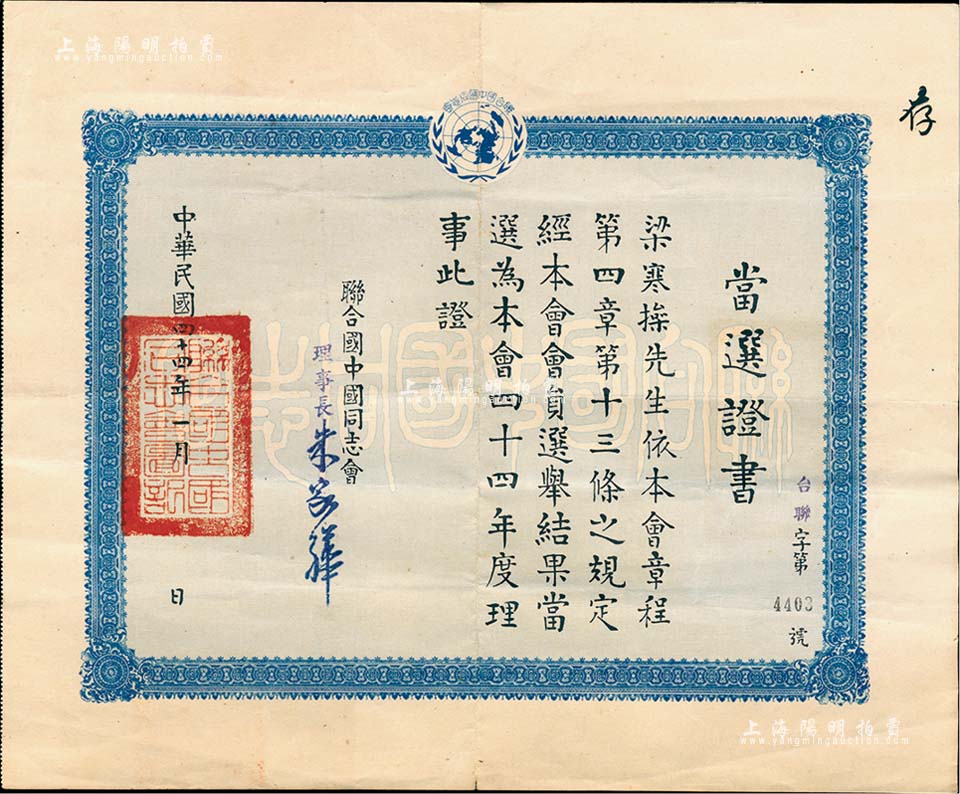 上海陽明拍賣
www.yangmingauction.com
存
聯合國中國同志會
當選證書
台聯字第4403號
梁寒操先生依本會章程
第四章第十三條之規定
經本會會員選舉結果當
選為本會四十四年度理
事此證
聯合國中國同志會
理事長朱家驊
中華民國四十四年一月 日
聯合國中國同志會
聯合國中國同志會圖記
上海陽明拍賣
www.yangmingauction.com
上海陽明拍賣
www.yangmingauction.com